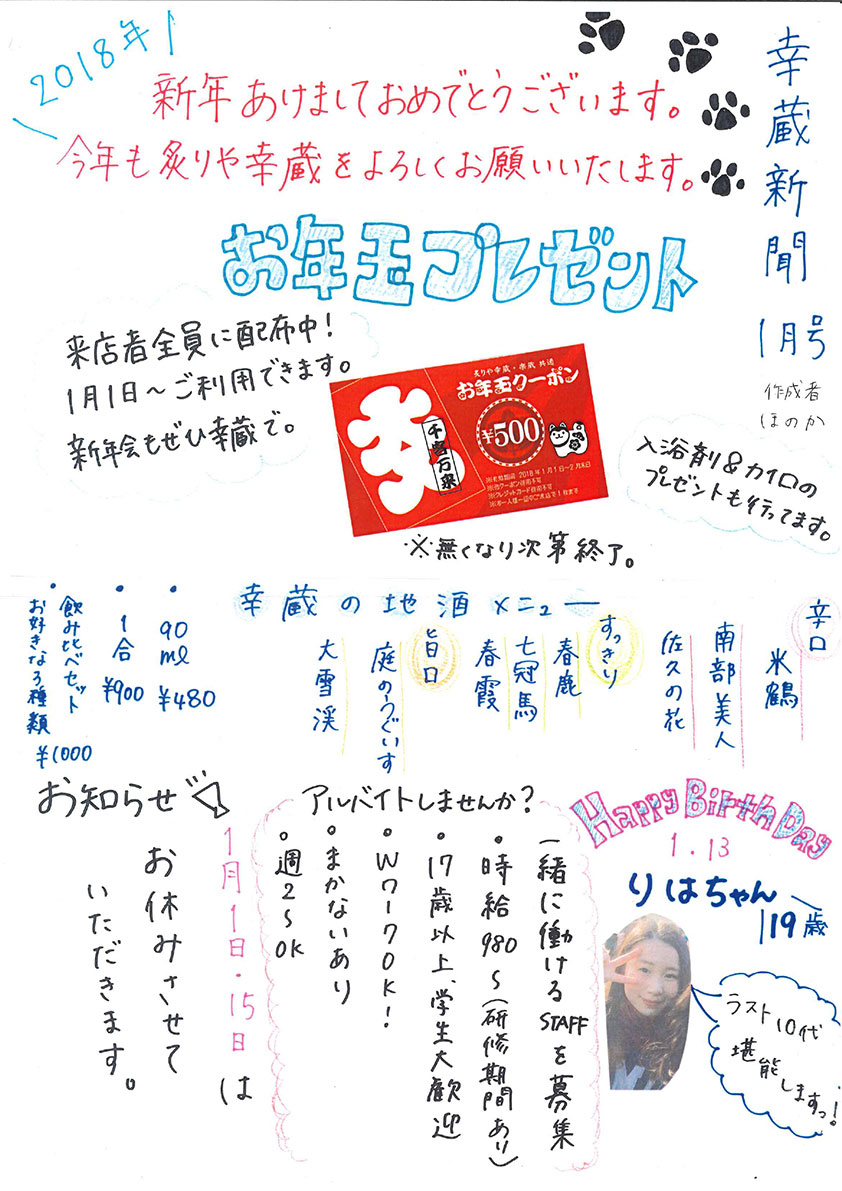 幸蔵新聞 1月号
作成者
ほのか
2018年
新年あけましておめでとうございます。
今年も炙りや幸蔵をよろしくお願いいたします。
お年玉プレゼント
来店者全員に配布中!
1月1日〜ご利用できます。
新年会もぜひ幸蔵で。
炙りや幸蔵・楽蔵 共通
お年玉クーポン
¥500
千客万来
※有効期間 2018年1月1日~2月末日
※他クーポン併用不可
※クレジットカード併用不可
※お一人様一回のご来店で1枚まで
※無くなり次第終了。
入浴剤&カイロの
プレゼントも行ってます。
幸蔵の地酒メニュー
辛口
米鶴
南部美人
佐久の花
すっきり
春鹿
七冠馬
春霞
旨口
庭のうぐいす
大雪渓
・90ml ¥480
・1合 ¥900
・飲み比べセット
お好きな3種類 ¥1000
Happy Birth Day
1.13
りはちゃん
19歳
ラスト10代
堪能しますっ!
アルバイトしませんか?
一緒に働けるSTAFFを募集
・時給980〜(研修期間あり)
・17歳以上、学生大歓迎
・WワークOK!
・まかないあり
・週2〜OK
お知らせ
1月1日・15日は
お休みさせて
いただきます。